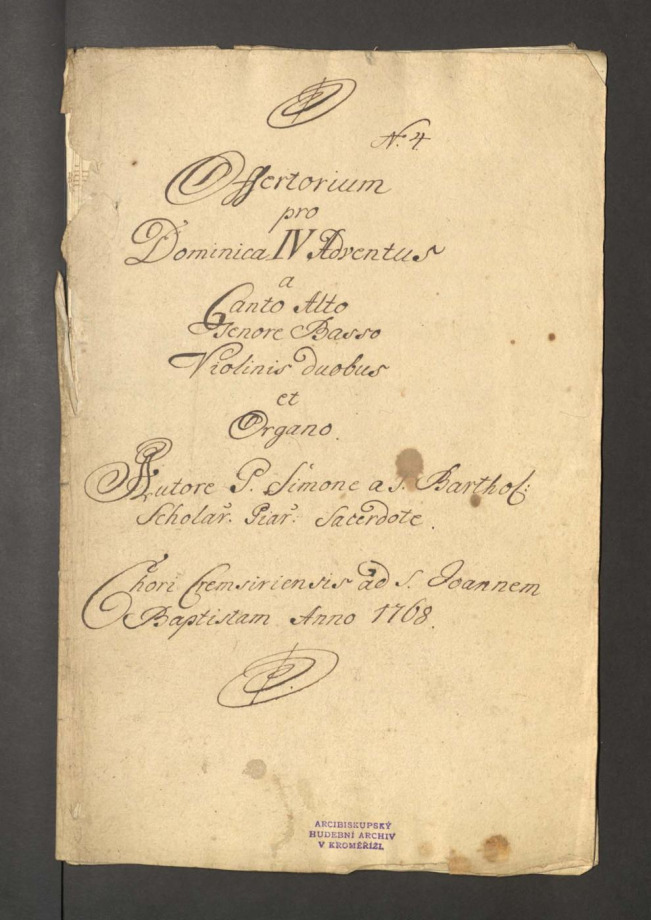 N. 4.
Offertorium
pro
Dominica IV Adventus
a
Canto Alto
Tenore Basso
Violinis duobus
et
Organo.
Autore P. Simone a S. Barthol:
Scholar. Piar. Sacerdote.
Chori Cremsiriensis ad S. Joannem
Baptistam Anno 1768.
ARCIBISKUPSKÝ
HUDEBNÍ ARCHIV
V KROMĚŘÍŽI.